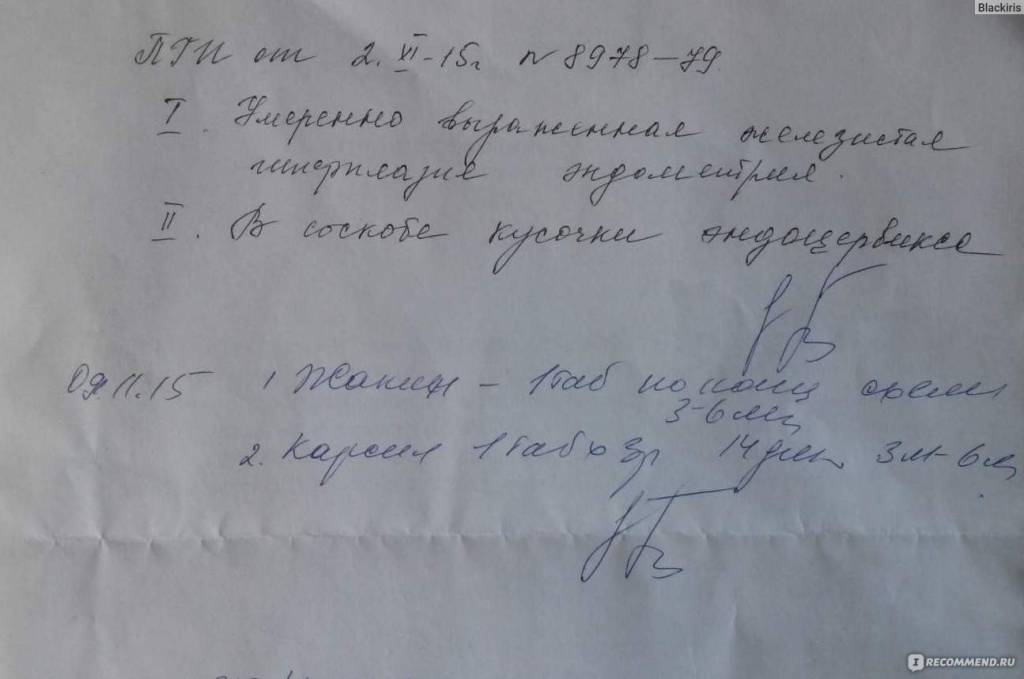 Blackiris
ПГИ от 2. XI-15г N 8978-79
I. Умеренно выраженная железистая
гиперплазия эндометрия.
II. В соскобе кусочки эндоцервикса
09.11.15 1 Жанин - 1таб по схеме
3-6 мц
2. Карсил 1таб х 3р 14 дней 3м-6м
IRECOMMEND.RU